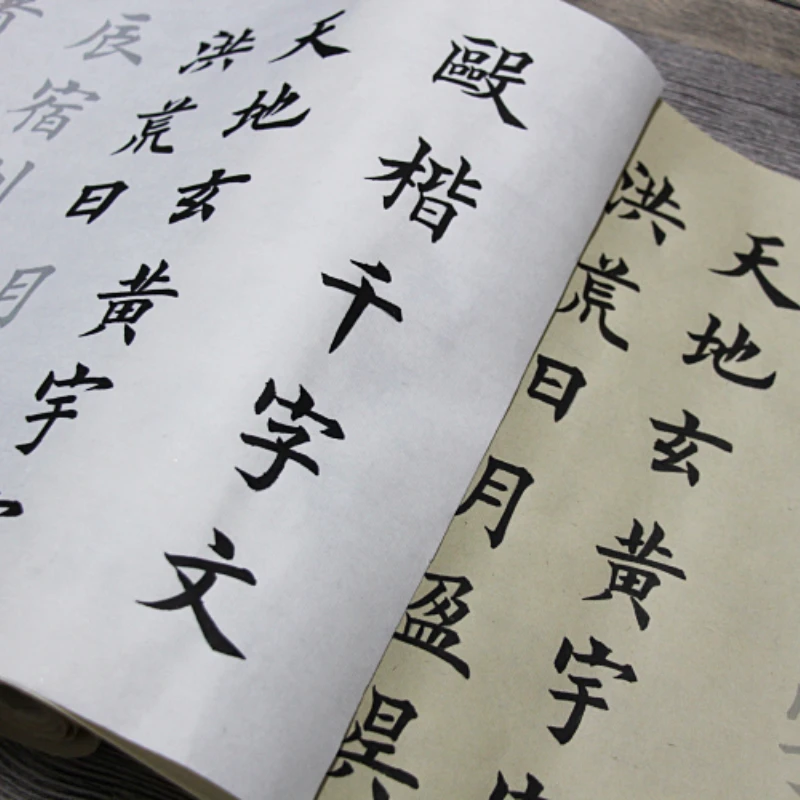 毆楷千字文
天地玄黄宇
洪荒日月
辰宿
天地玄黄宇
洪荒日月盈昃